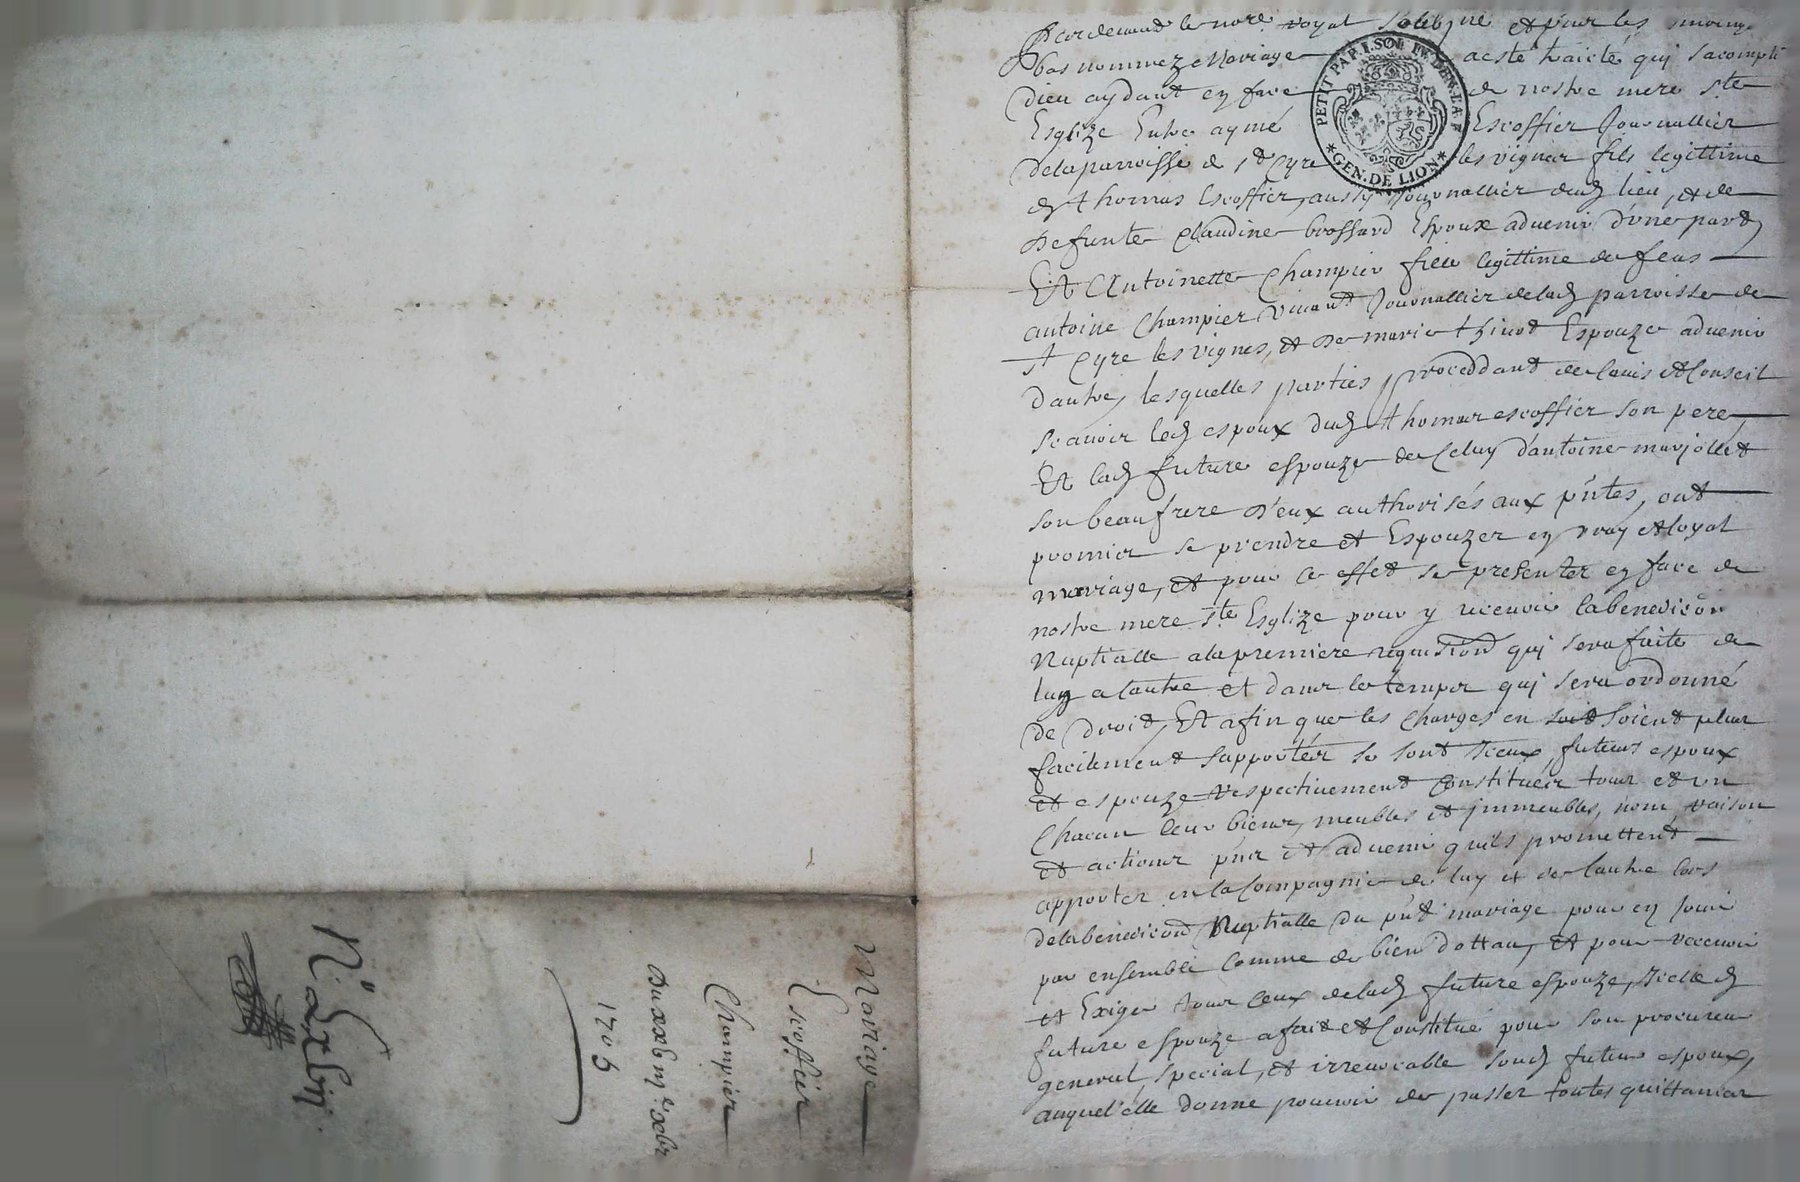 Pardevant le nore royal soubzne et p̃nt les tesmoingz
bas nommez Mariage a esté traicté qui sacomplira
Dieu aydant en face de nostre mere ste
Esglize Entre aymé Escoffier Journallier
delaparroisse de st Cyre les vignes fils legittime
de thomas Escoffier, aussy Journallier dud lieu, et de
Defunte Claudine brossard Espoux advenir d'une part
Et Antoinette Champier fille legittime de feus
antoine Champier vivant Journallier delad parroisse de
st Cyre les vignes, et de marie thinot Espouze advenir
dautre, lesquelles parties proceddant de lavis et Conseil
scavoir led espoux dud thomas escoffier son pere
Et lad future espouze de Celuy d'antoine marjollet
son beaufrere d'eux authorisés aux p̃ntes, ont
promis se prendre et Espouzer en vray et loyal
mariage, et pour ce effet se presenter en face de
nostre mere ste Esglize pour y recevoir labenediçõn
Nuptialle alapremiere requisiõn qui sera faite de
lun a lautre et dans le temps qui sera ordonné
de droit, Et afin que les charges en soit soient plus
facilement suportées se sont iceux futeurs espoux
et espouze respectivement Constitués tous et un
Chacun leurs biens, meubles et immeubles, noms raison
et actions p̃ns et advenir quils promettent
apporter en la Compagnie de luy et de lautre lors
delabenediçõn Nuptialle du p̃nt mariage pour en jouir
par ensemble comme de bien dottaux, et pour recevoir
et Exiger tous ceux delad future espouze, icelle d
future espouze a fait et Constitué pour son procureur
general, special, et irrevocable sond futeur espoux,
auquel elle donne pouvoir de passer toutes quittances
PETIT PAP.
GEN. DE LION
Mariage
Escoffier
Champier
Du xxbiiie xbr
1706